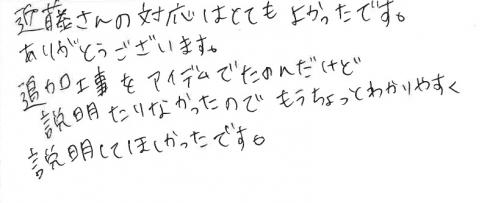 近藤さんの対応はとてもよかったです。
ありがとうございます。
追加工事をアイデムでたのんだけど
説明たりなかったのでもうちょっとわかりやすく
説明してほしかったです。